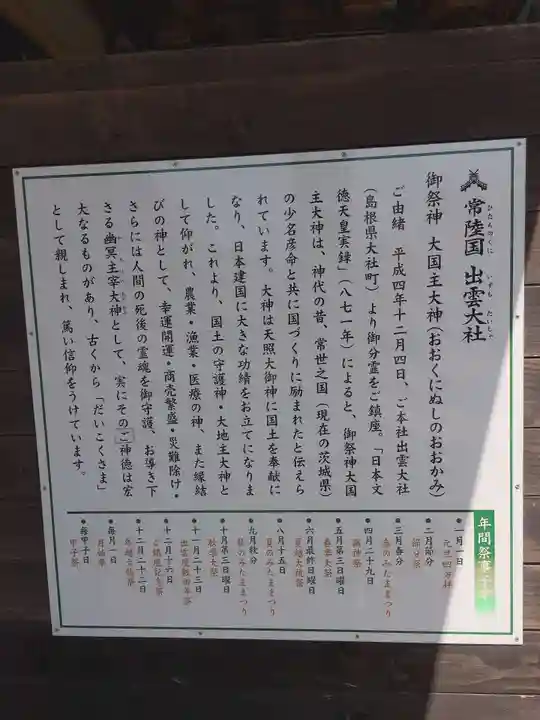 常陸国 出雲大社
ひたちのくに いずも たいしゃ
御祭神 大国主大神(おおくにぬしのおおかみ)
ご由緒 平成四年十二月四日、ご本社出雲大社
(島根県大社町)より御分霊をご鎮座。「日本文
徳天皇実録」(八七一年)によると、御祭神大国
主大神は、神代の昔、常世之国(現在の茨城県)
の少名彦命と共に国づくりに励まれたと伝えら
れています。大神は天照大御神に国土を奉献に
なり、日本建国に大きな功績をお立てになりま
した。これより、国土の守護神・大地主大神と
して仰がれ、農業・漁業・医療の神、また縁結
びの神として、幸運開運・商売繁盛・災難除け・
さらには人間の死後の霊魂を御守護、お導き下
さる幽冥主宰大神として、実にそのご神徳は宏
大なるものがあり、古くから「だいこくさま」
として親しまれ、篤い信仰をうけています。
年間祭事
●一月一日
元旦四方拝
●二月節分
節分祭
●三月春分
春のみたままつり
●四月二十九日
鎮神祭
●五月第三日曜日
春季大祭
●六月最終日曜日
夏越大祓祭
●八月十五日
夏のみたままつり
●九月秋分
秋のみたままつり
●十月第三日曜日
秋季大祭
●十一月二十三日
出雲屋敷四年祭
●十二月十六日
ご鎮座記念祭
●十二月二十二日
年越
●毎月一日
月始祭
●毎甲子日
甲子祭